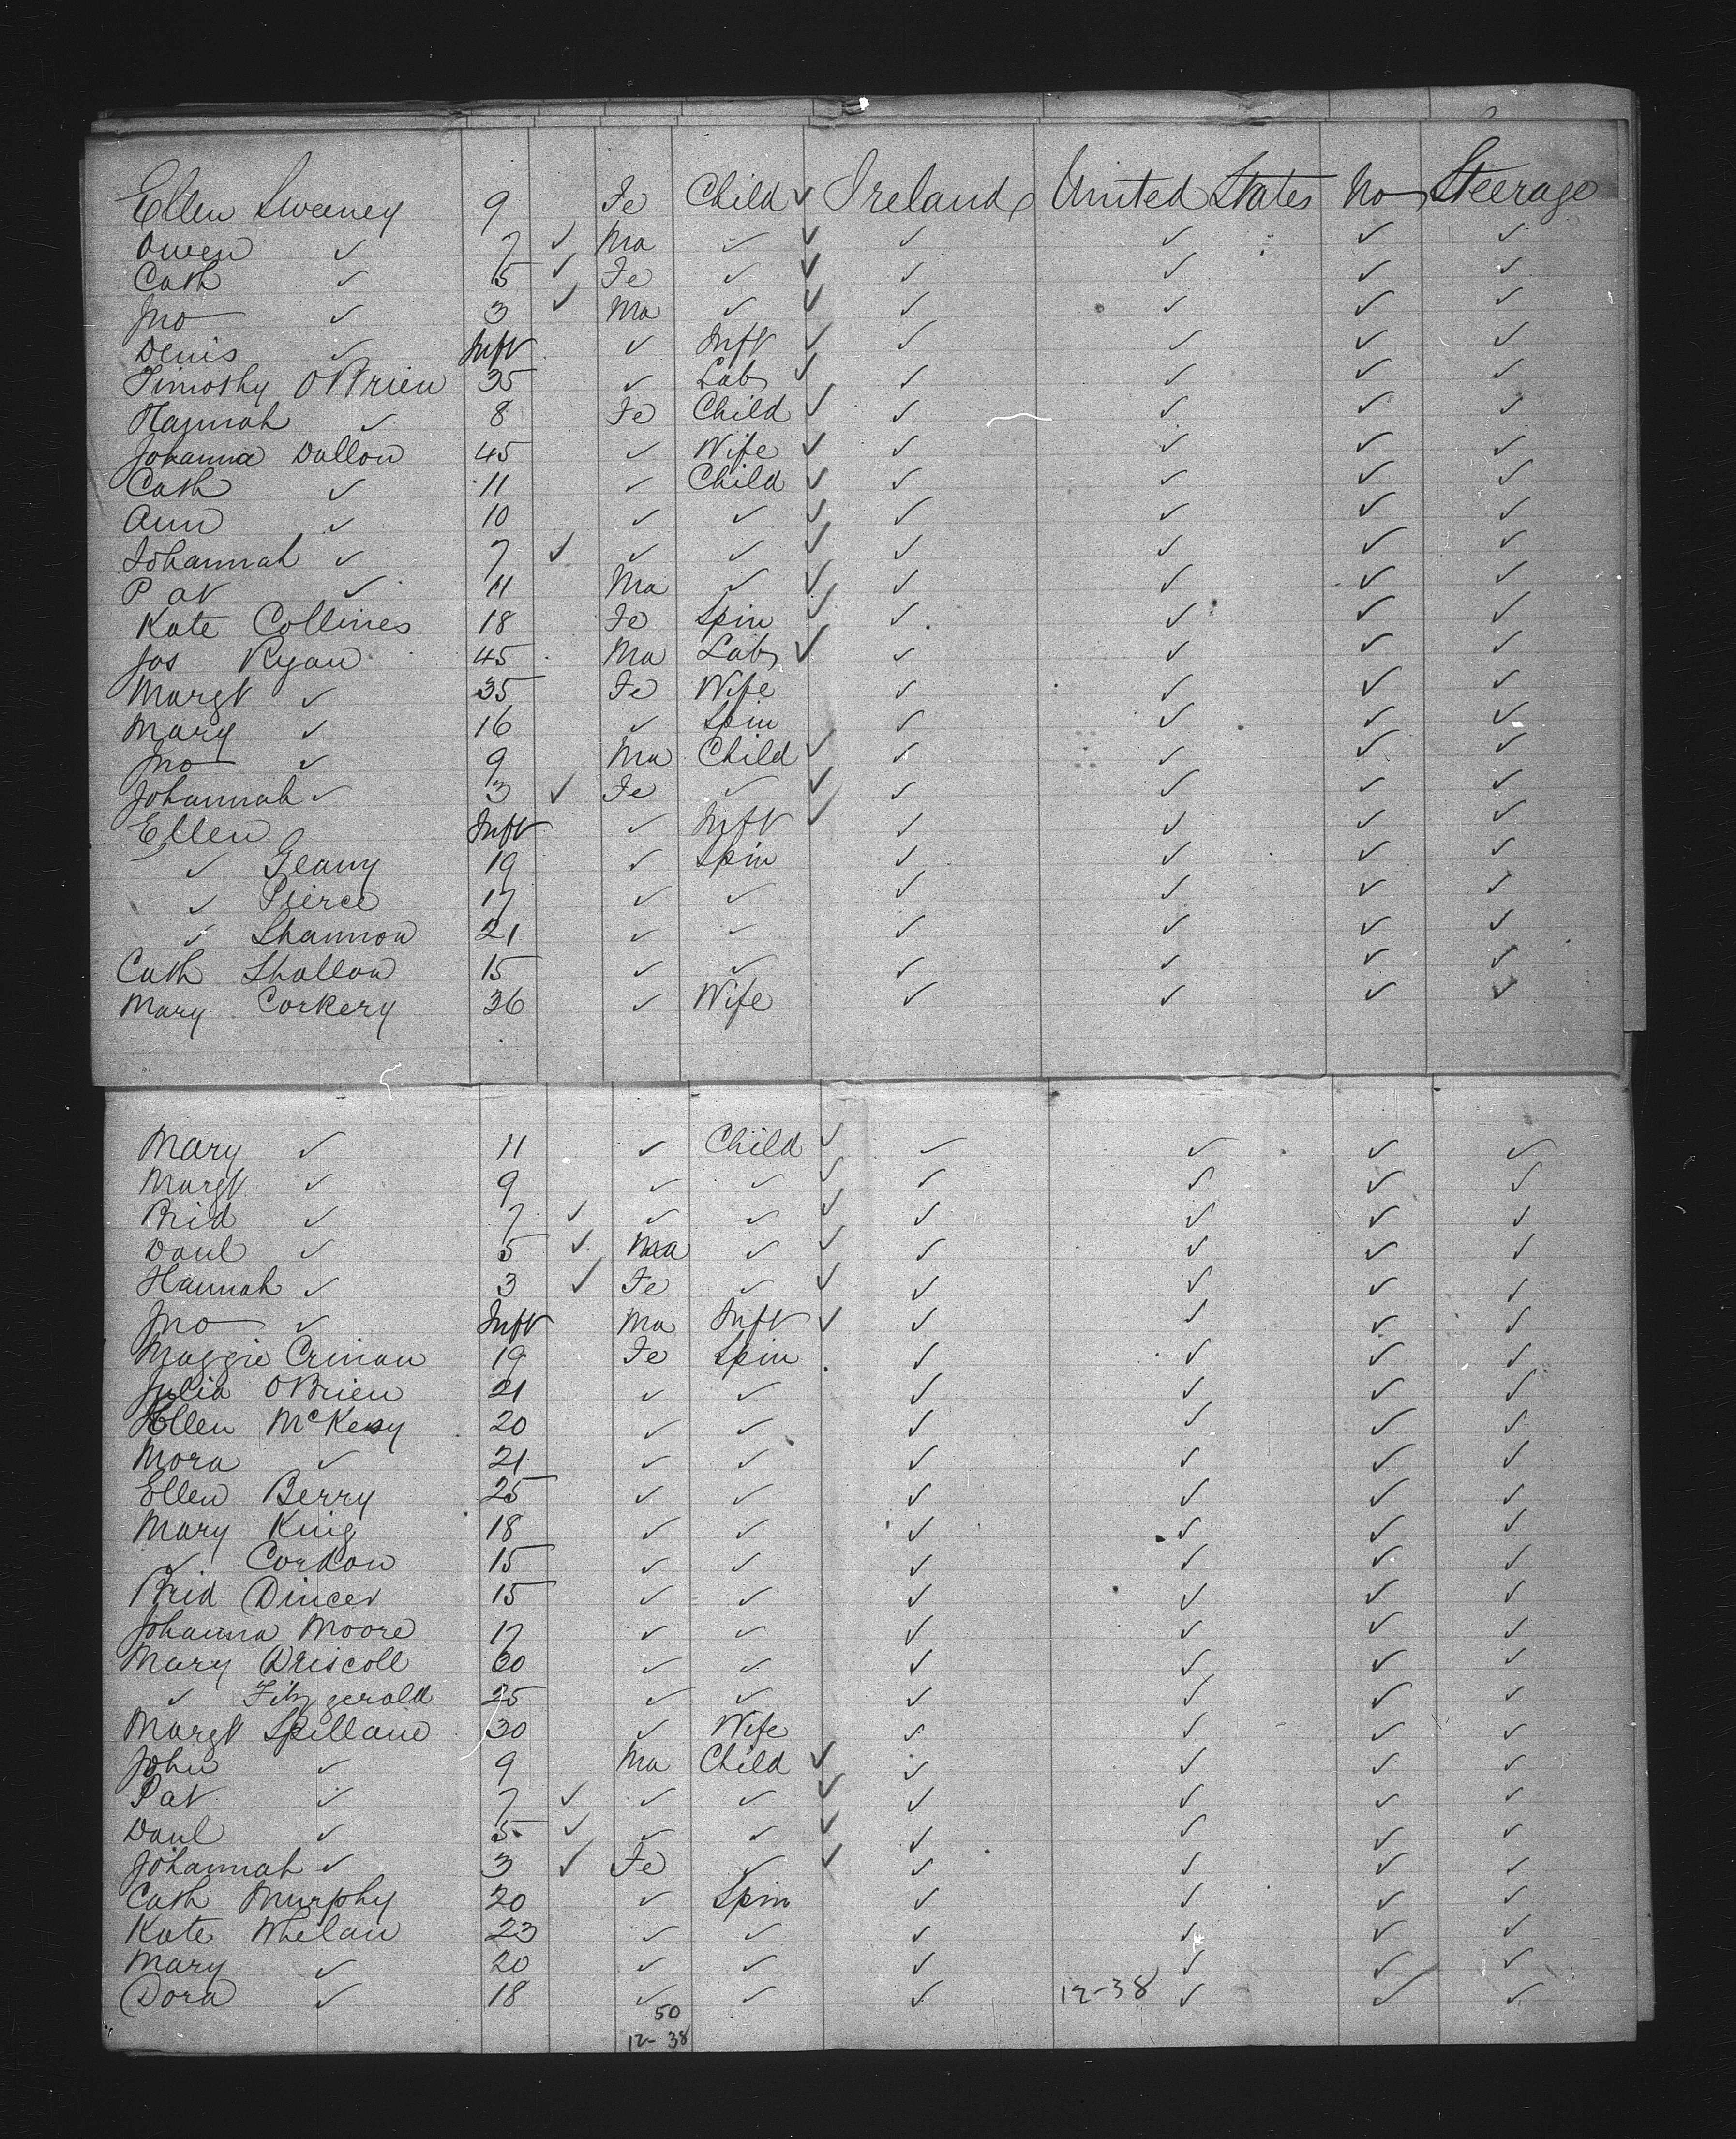 Ellen Sweeney 9 Fe Child ✓ Ireland United States No Steerage
Owen ✓ 7 ✓ Ma ✓ ✓ ✓ ✓ ✓ ✓
Cath ✓ 5 ✓ Fe ✓ ✓ ✓ ✓ ✓ ✓
Jno ✓ 3 ✓ Ma ✓ ✓ ✓ ✓ ✓ ✓
Denis ✓ Inft ✓ Inft ✓ ✓ ✓ ✓ ✓
Timothy OBrien 35 ✓ Lab ✓ ✓ ✓ ✓ ✓
Hannah ✓ 8 Fe Child ✓ ✓ ✓ ✓ ✓
Johanna Dallon 45 ✓ Wife ✓ ✓ ✓ ✓ ✓
Cath ✓ 11 ✓ Child ✓ ✓ ✓ ✓ ✓
Ann ✓ 10 ✓ ✓ ✓ ✓ ✓ ✓ ✓
Johannah ✓ 7 ✓ ✓ ✓ ✓ ✓ ✓ ✓ ✓
Pat ✓ 11 Ma ✓ ✓ ✓ ✓ ✓ ✓
Kate Collines 18 Fe Spin ✓ ✓ ✓ ✓ ✓
Jas Ryan 45 Ma Lab ✓ ✓ ✓ ✓ ✓
Margt ✓ 35 Fe Wife ✓ ✓ ✓ ✓
Mary ✓ 16 ✓ Spin ✓ ✓ ✓ ✓
Jno ✓ 9 Ma Child ✓ ✓ ✓ ✓ ✓
Johannah ✓ 3 ✓ Fe ✓ ✓ ✓ ✓ ✓ ✓
Ellen Inft ✓ Inft ✓ ✓ ✓ ✓ ✓
✓ Geany 19 ✓ Spin ✓ ✓ ✓ ✓
✓ Pierce 17 ✓ ✓ ✓ ✓ ✓ ✓
✓ Shannon 21 ✓ ✓ ✓ ✓ ✓ ✓
Cath Shallow 15 ✓ ✓ ✓ ✓ ✓ ✓
Mary Corkery 36 ✓ Wife ✓ ✓ ✓ ✓
Mary ✓ 11 ✓ Child ✓ ✓ ✓ ✓ ✓
Margt ✓ 9 ✓ ✓ ✓ ✓ ✓ ✓ ✓
Brid ✓ 7 ✓ ✓ ✓ ✓ ✓ ✓ ✓ ✓
Danl ✓ 5 ✓ Ma ✓ ✓ ✓ ✓ ✓ ✓
Hannah ✓ 3 ✓ Fe ✓ ✓ ✓ ✓ ✓ ✓
Jno ✓ Inft Ma Inft ✓ ✓ ✓ ✓ ✓
Maggie Crinan 19 Fe Spin ✓ ✓ ✓ ✓
Julia OBrien 21 ✓ ✓ ✓ ✓ ✓ ✓
Ellen 20 ✓ ✓ ✓ ✓ ✓ ✓
Mora ✓ 21 ✓ ✓ ✓ ✓ ✓ ✓
Ellen Berry 25 ✓ ✓ ✓ ✓ ✓ ✓
Mary King 18 ✓ ✓ ✓ ✓ ✓ ✓
✓ Cordon 15 ✓ ✓ ✓ ✓ ✓ ✓
Brid 15 ✓ ✓ ✓ ✓ ✓ ✓
Johanna Moore 17 ✓ ✓ ✓ ✓ ✓ ✓
Mary Driscoll 60 ✓ ✓ ✓ ✓ ✓ ✓
✓ Fitzgerald 25 ✓ ✓ ✓ ✓ ✓ ✓
Margt Spillane 30 ✓ Wife ✓ ✓ ✓ ✓
John ✓ 9 Ma Child ✓ ✓ ✓ ✓ ✓
Pat ✓ 7 ✓ ✓ ✓ ✓ ✓ ✓ ✓ ✓
Danl ✓ 5 ✓ ✓ ✓ ✓ ✓ ✓ ✓ ✓
Johannah ✓ 3 ✓ Fe ✓ ✓ ✓ ✓ ✓ ✓
Cath Murphy 20 ✓ Spin ✓ ✓ ✓ ✓
Kate Whelan 23 ✓ ✓ ✓ ✓ ✓ ✓
Mary ✓ 20 ✓ ✓ ✓ ✓ ✓ ✓
Dora ✓ 18 ✓ ✓ ✓ 12-38 ✓ ✓ ✓
50
12-38